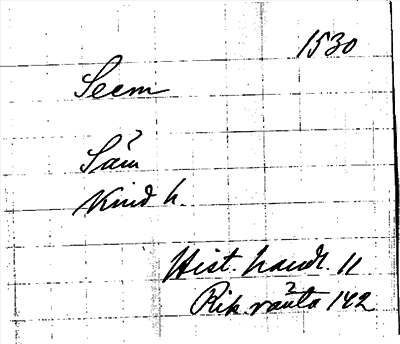 1530
Seem
Säm
Kind h.
Hist. handl. 11
Rik. ränta 142